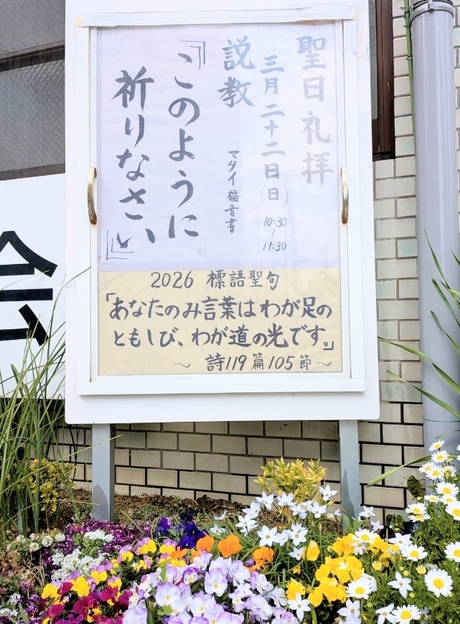 聖日礼拝
三月二十二日(日) 10:30~11:30
説教 マタイ福音書
『このように
祈りなさい』
2026 標語聖句
「あなたのみ言葉はわが足の
ともしび、わが道の光です。」
~詩119篇105節~
会